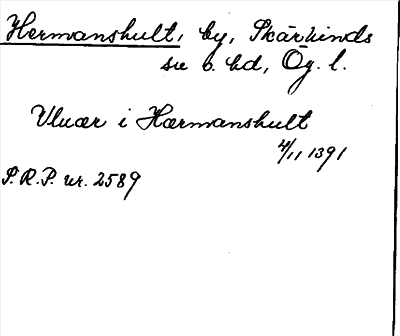 Hermanshult, by, Skärkinds
sn o. hd, Ög. l.
Uluær i Hærmanshult
4/11 1391
S.R.P. nr. 2589